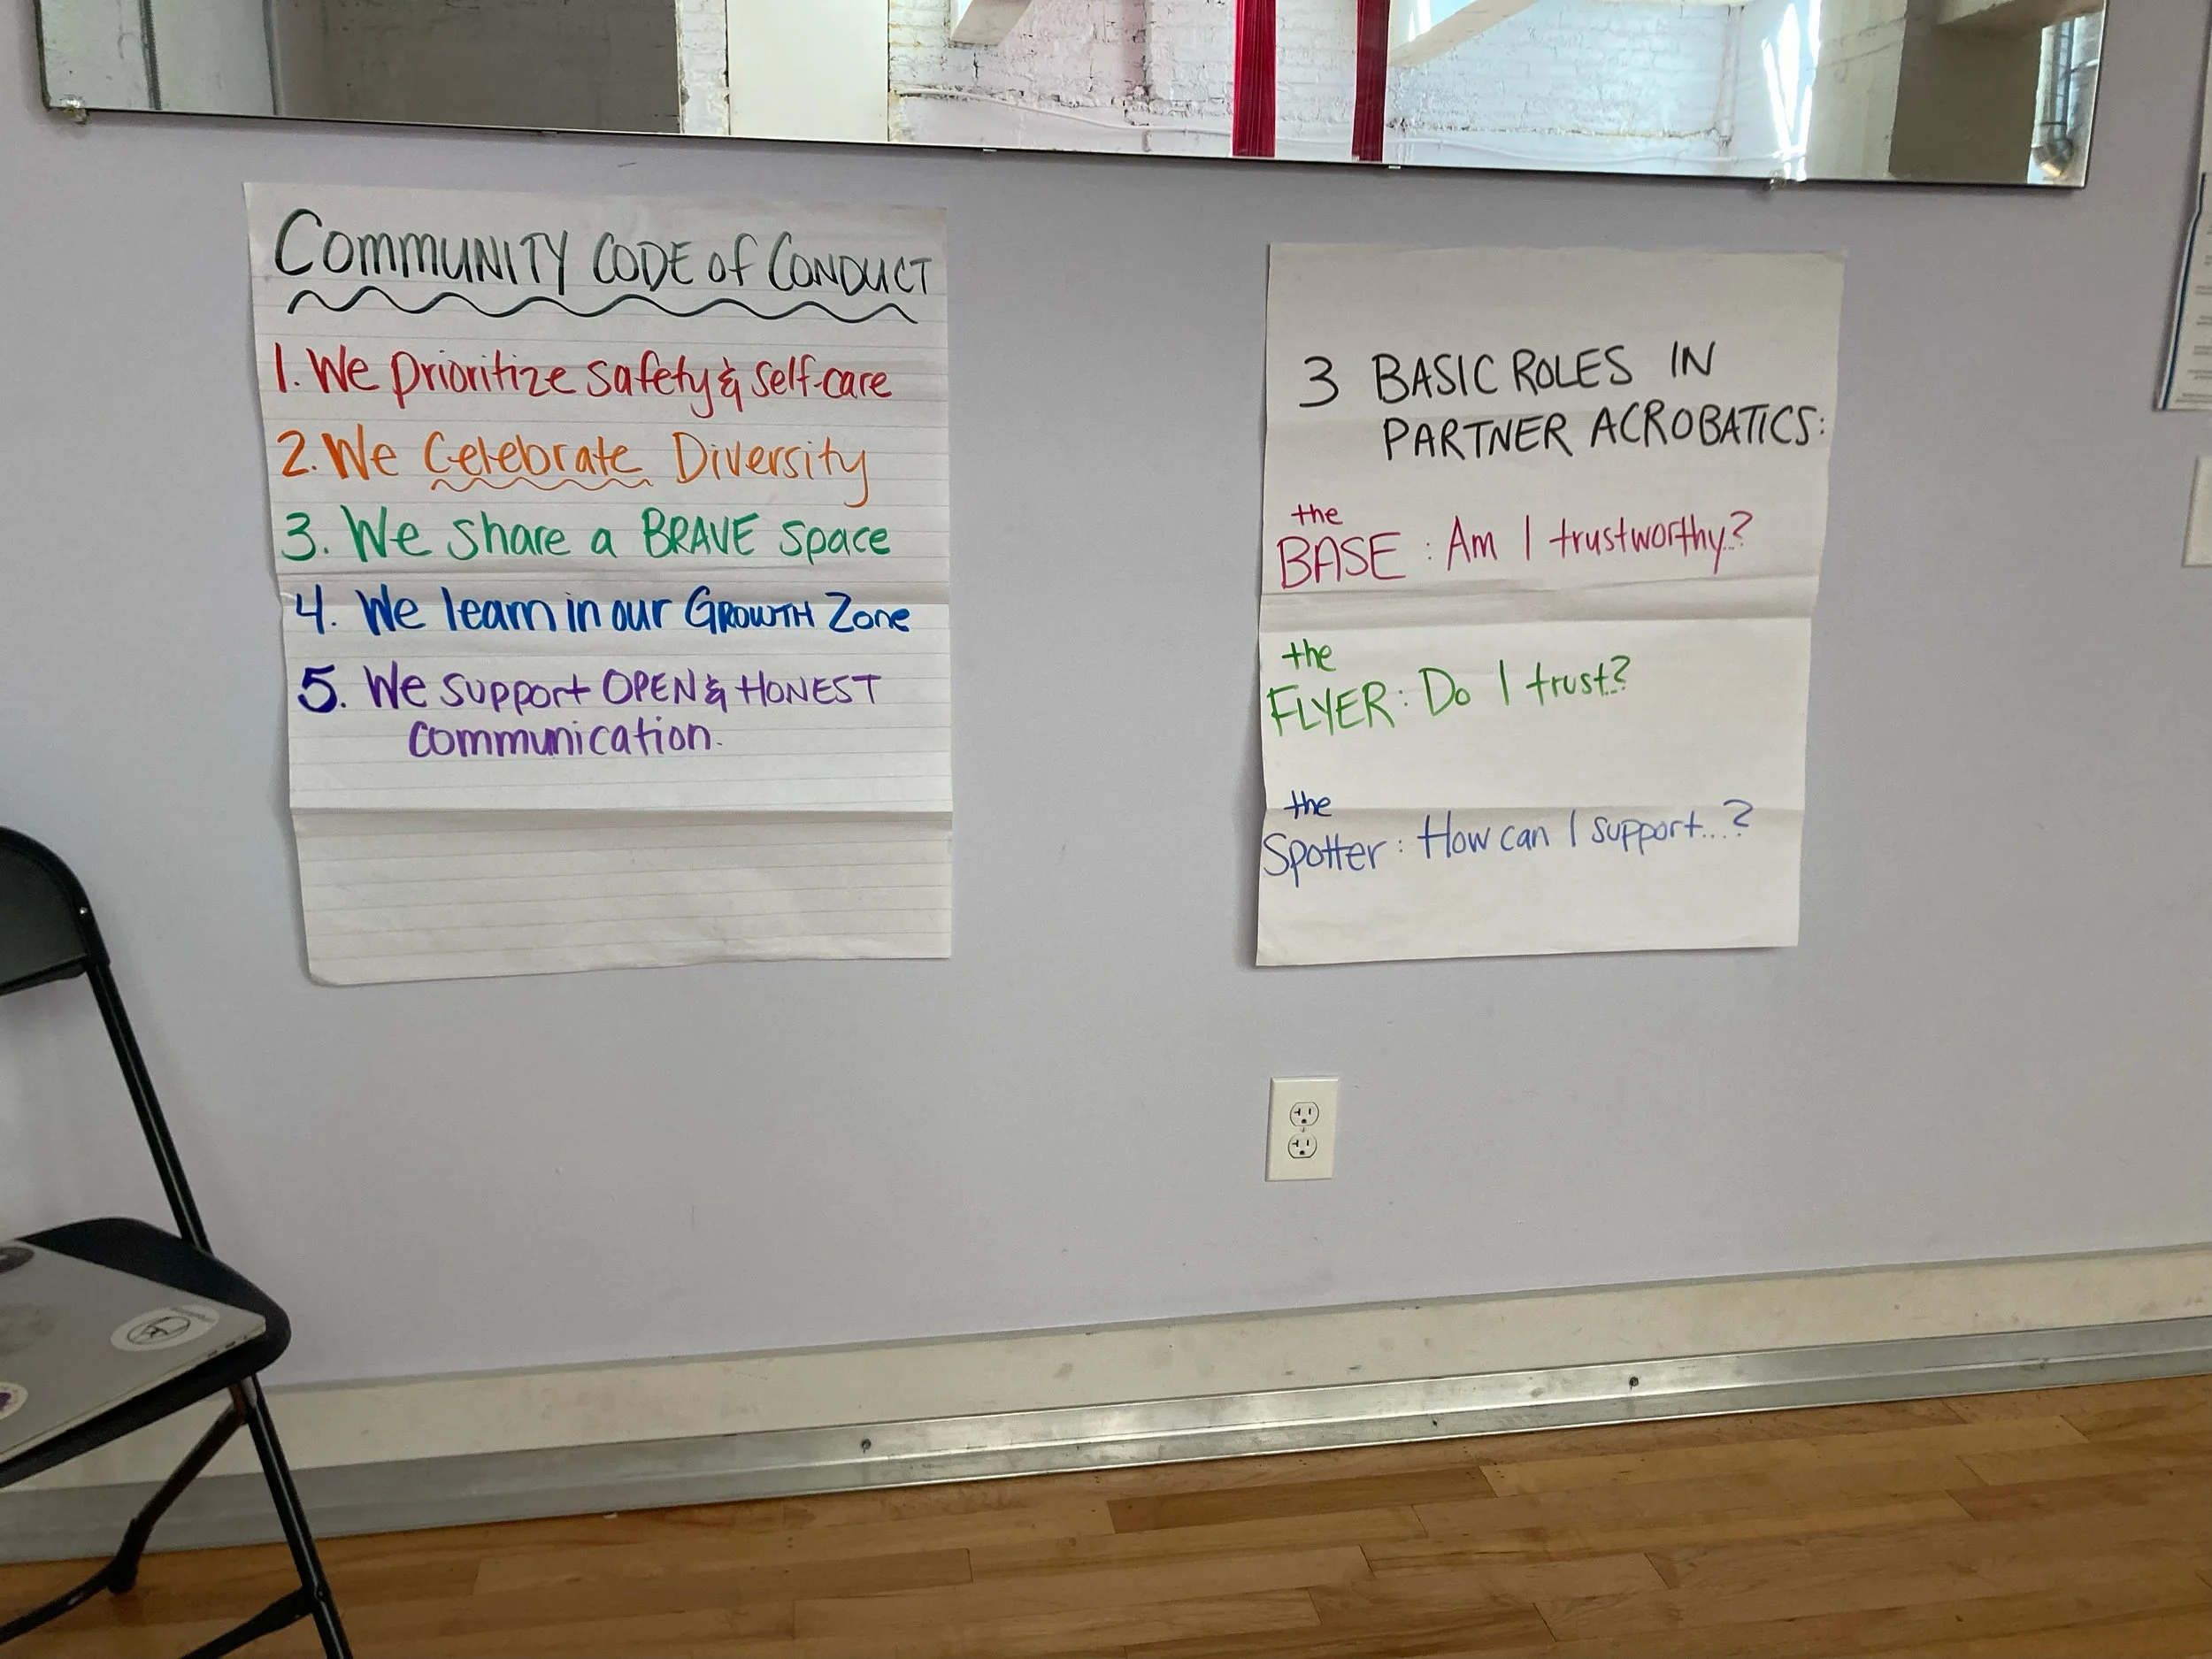 COMMUNITY CODE of CONDUCT
1. We prioritize safety & self-care
2. We Celebrate Diversity
3. We share a BRAVE space
4. We learn in our GROWTH Zone
5. We support OPEN & HONEST
communication.
3 BASIC ROLES IN
PARTNER ACROBATICS:
the
BASE : Am I trustworthy?
the
FLYER : Do I trust?
the
Spotter : How can I support...?